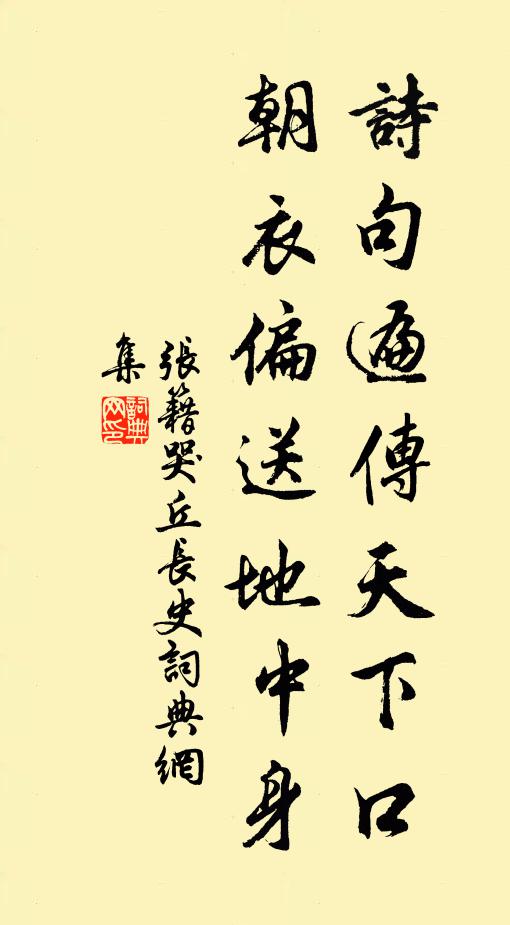 詩句遍傳天下口
朝衣偏送地中身
張籍哭丘長史詞典網
集
詞典網印